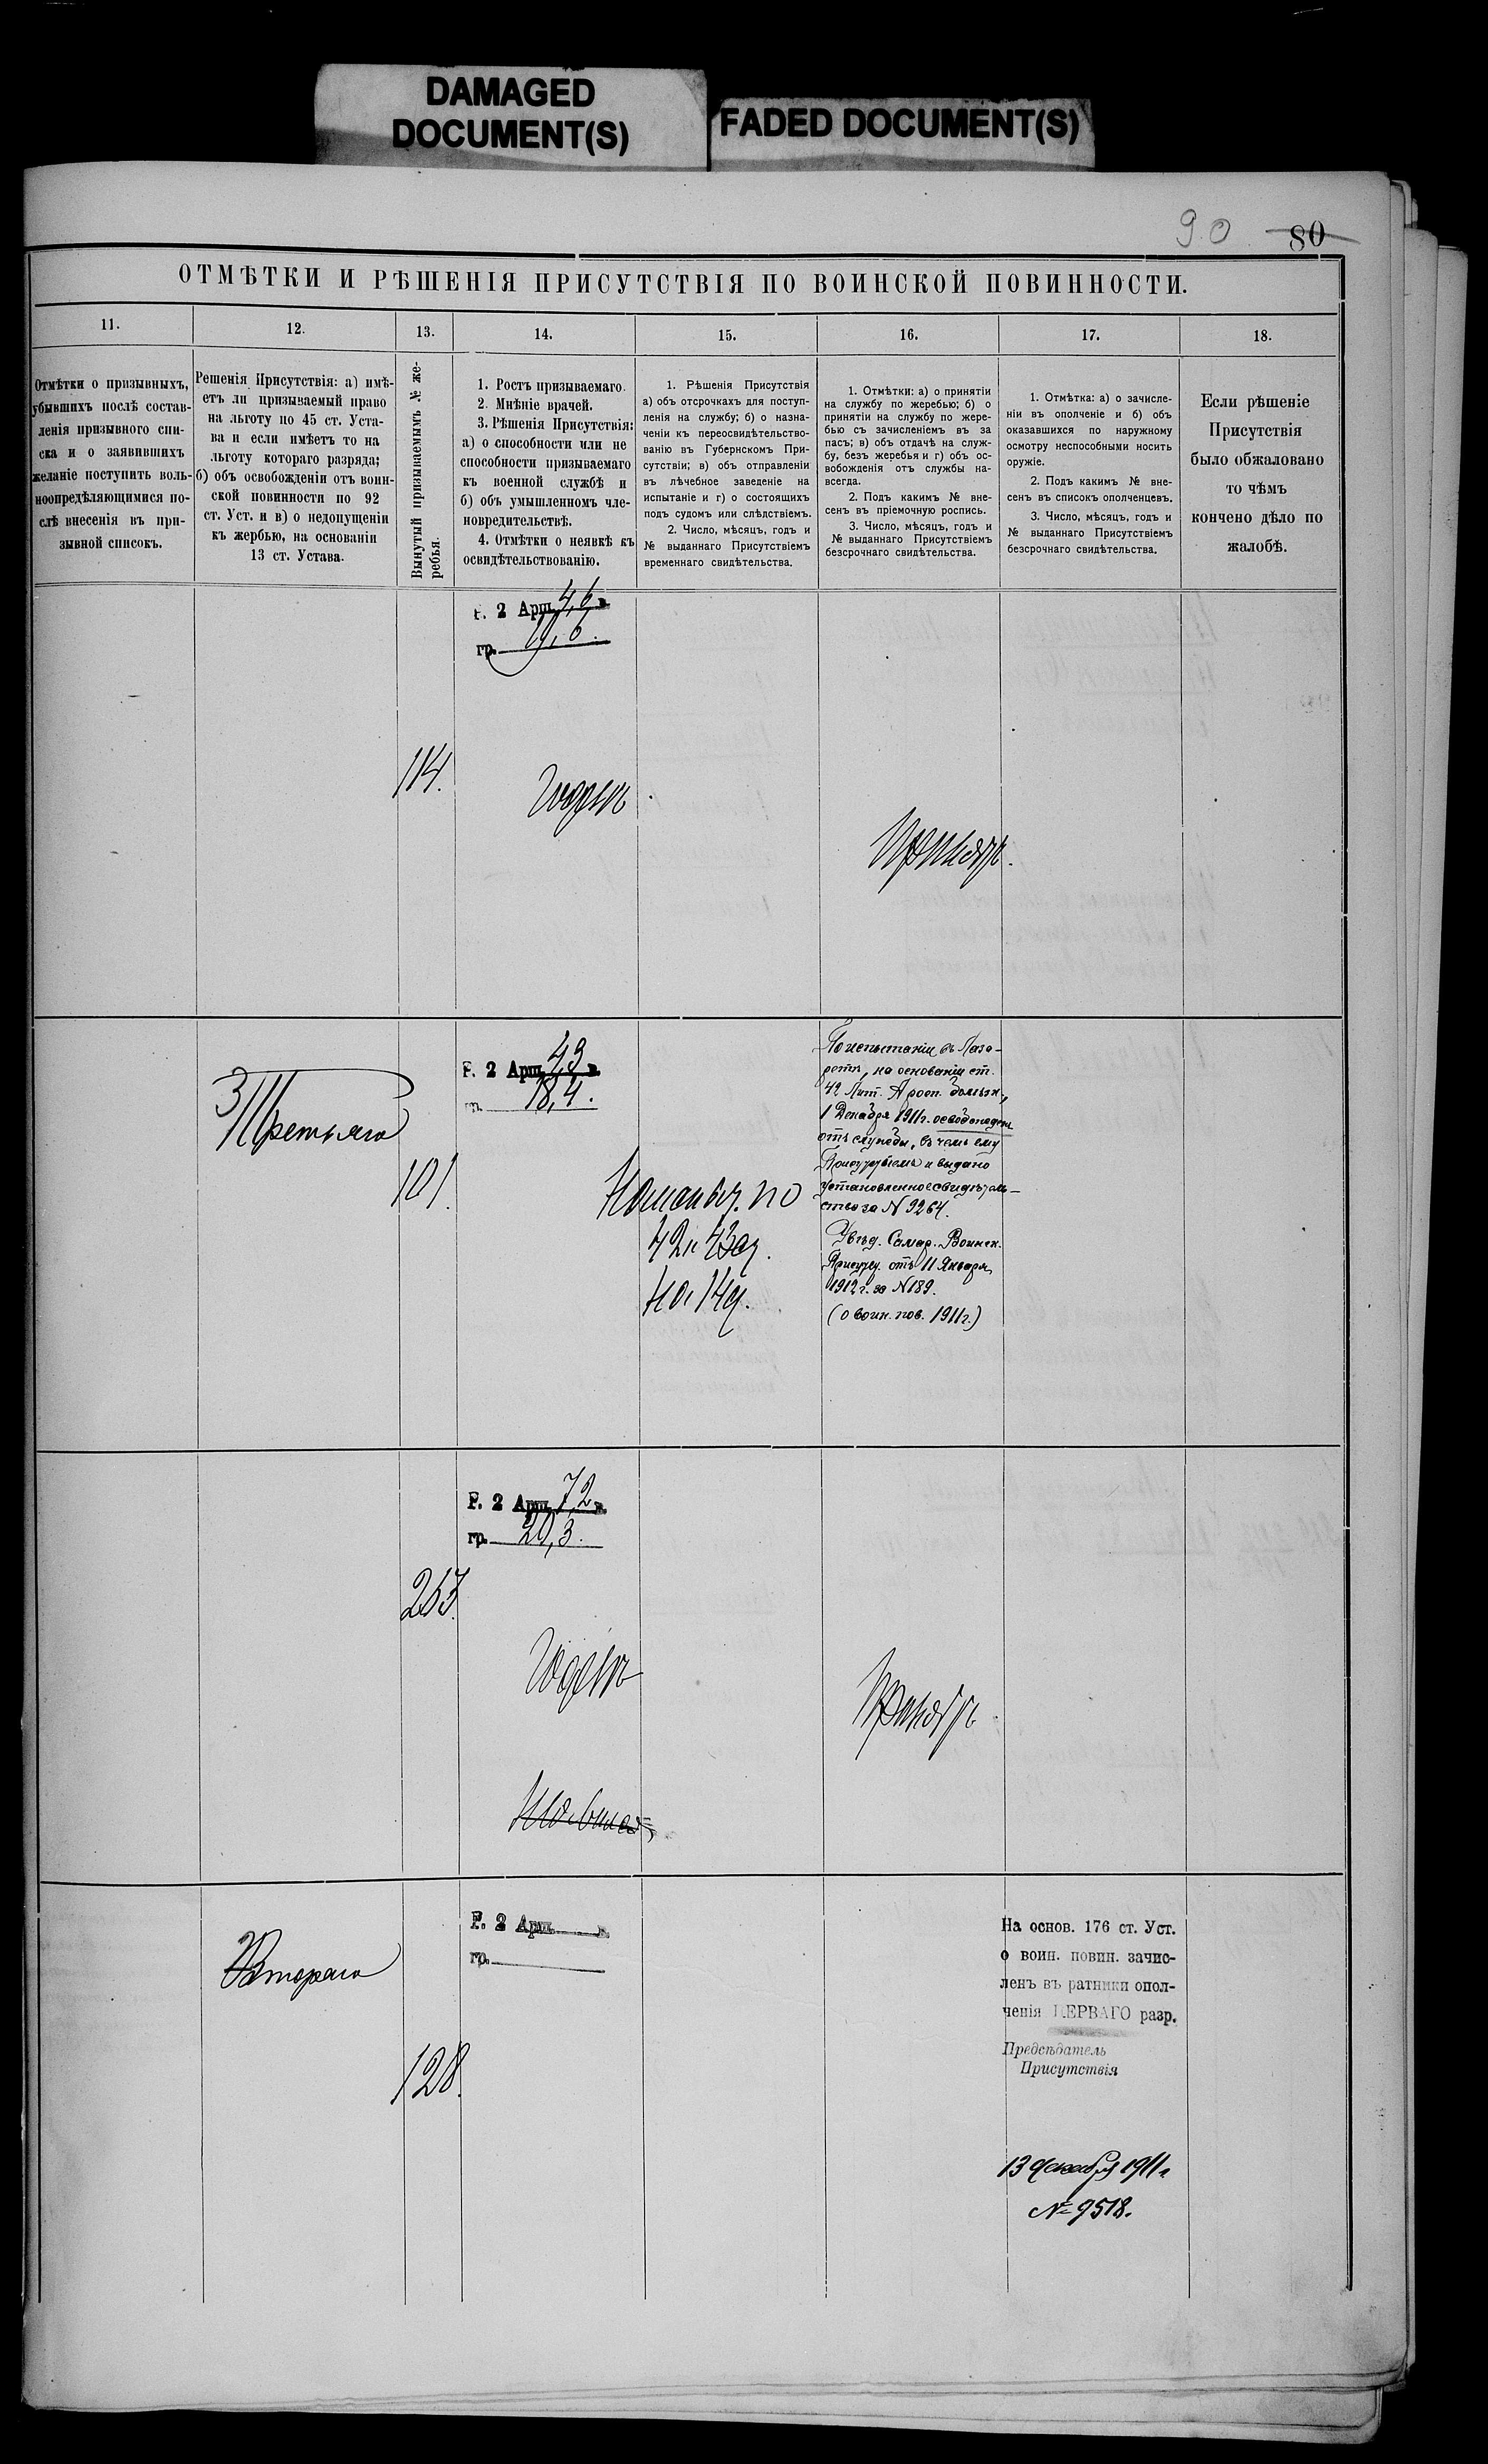 DAMAGED
DOCUMENT(S)
FADED DOCUMENT(S)
90 80
ОТМѢТКИ И РѢШЕНІЯ ПРИСУТСТВІЯ ПО ВОИНСКОЙ ПОВИННОСТИ.
11.
12.
13.
14.
15.
16.
17.
18.
Отмѣтки о призывныхъ,
убывшихъ послѣ состав-
ленія призывного спи-
ска и о заявившихъ
желаніе поступить воль-
ноопредѣляющимися по-
слѣ внесенія въ при-
зывной списокъ.
Решенія Присутствія: а) имѣ-
етъ ли призываемый право
на льготу по 45 ст. Уста-
ва и если имѣетъ то на
льготу котораго разряда;
б) объ освобожденіи отъ воин-
ской повинности по 92
ст. Уст. и в) о недопущеніи
къ жербью, на основаніи
13 ст. Устава.
Вынутый призываемымъ № же-
ребья.
1. Ростъ призываемаго.
2. Мнѣніе врачей.
3. Рѣшенія Присутствія:
а) о способности или не
способности призываемаго
къ военной службѣ и
б) объ умышленномъ чле-
новредительствѣ.
4. Отмѣтки о неявкѣ къ
освидѣтельствованію.
1. Рѣшенія Присутствія
а) объ отсрочкахъ для поступ-
ленія на службу; б) о назна-
ченіи къ переосвидѣтельство-
ванію въ Губернскомъ При-
сутствіи; в) объ отправленіи
въ лѣчебное заведеніе на
испытаніе и г) о состоящихъ
подъ судомъ или слѣдствіемъ.
2. Число, мѣсяцъ, годъ и
№ выданнаго Присутствіемъ
временнаго свидѣтельства.
1. Отмѣтки: а) о принятіи
на службу по жеребью; б) о
принятіи на службу по жере-
бью съ зачисленіемъ въ за
пасъ; в) объ отдачѣ на служ-
бу, безъ жеребья и г) объ ос-
вобожденія отъ службы на-
всегда.
2. Подъ какимъ № вне-
сенъ въ пріемочную роспись.
3. Число, мѣсяцъ, годъ и
№ выданнаго Присутствіемъ
безсрочнаго свидѣтельства.
1. Отмѣтка: а) о зачисле-
ніи въ ополченіе и б) объ
оказавшихся по наружному
осмотру неспособными носить
оружіе.
2. Подъ какимъ № вне-
сенъ въ списокъ ополченцевъ.
3. Число, мѣсяцъ, годъ и
№ выданнаго Присутствіемъ
безсрочнаго свидѣтельства.
Если рѣшеніе
Присутствія
было обжаловано
то чѣмъ
кончено дѣло по
жалобѣ.
Р. 2 Арш. 4,6 в.
гр.
114.
Годенъ
Принятъ.
Р. 2 Арш. 4,3 в.
гр. 18,4.
3/Третьяго
101.
по
42 и 43
По испытаніи въ Лаза-
ретѣ, на основаніи ст.
42 Лит. А росп. болѣзн.,
1 Декабря 1911г. освобожденъ
отъ службы, въ чемъ ему
Присутствіемъ и выдано
установленное свидѣтель-
ство за N 9264.
Увѣд. Самар. Воинск.
Присут. отъ 11 Января
1912г. за N 189.
(о воин. пов. 1911г.)
Р. 2 Арш. 7,2 в.
гр. 20,3.
Годенъ
Принятъ
Р. 2 Арш. в.
гр.
Втораго
128.
На основ. 176 ст. Уст.
о воин. повин. зачис-
ленъ въ ратники опол-
ченія ПЕРВАГО разр.
Предсѣдатель
Присутствія
13 декабря 1911г
№ 9518.